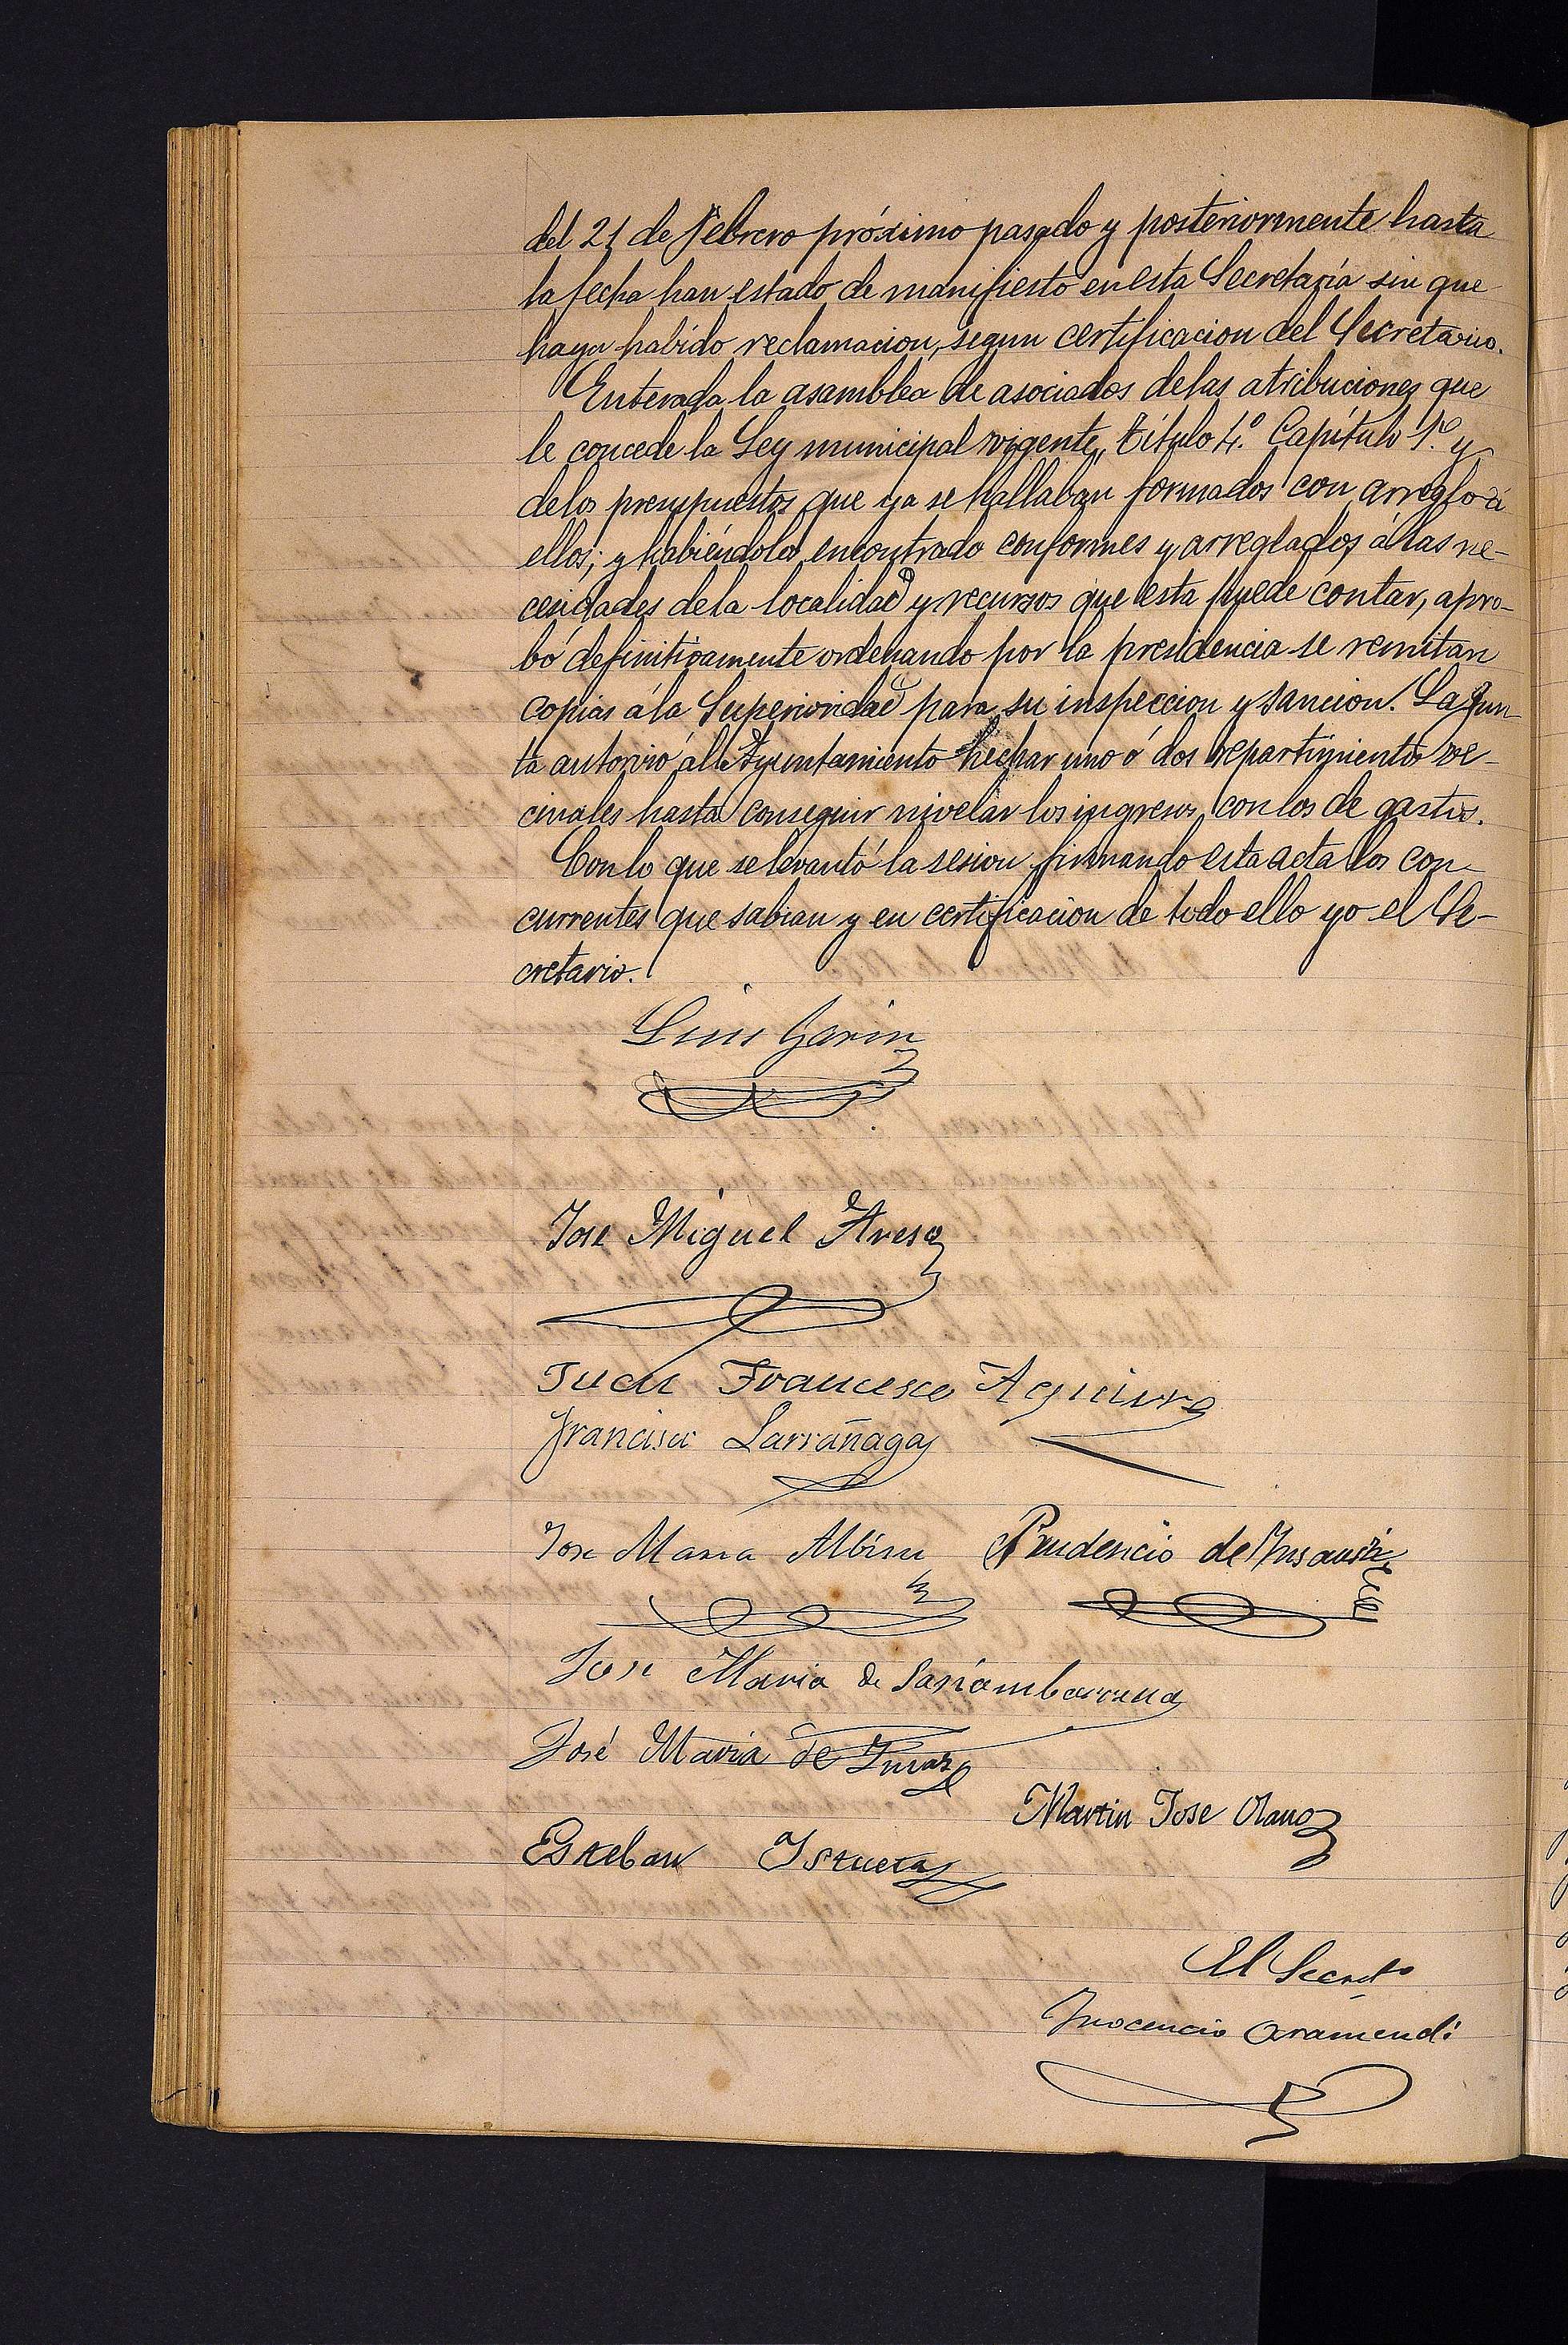 del 21 de Febrero próximo pasado y posteriormente hasta
la fecha han estado de manifiesto en esta Secretaría sin que
haya habido reclamacion, segun certificacion del Secretario.
Enterada la asamblea de asociados de las atribuciones que
le concede la Ley municipal vigente, título 4.º Capítulo 1.º y
de los presupuestos que ya se hallaban formados con arreglo á
ellos; y habiéndolos encontrado conformes y arreglados á las ne-
cesidades de la localidad y recursos que esta puede contar, apro-
bó definitivamente ordenando por la presidencia se remitan
copias á la Superioridad para su inspeccion y sancion. La Jun-
ta autorizó al Ayuntamiento hechar uno ó dos repartimientos ve-
cinales hasta conseguir nivelar los ingresos con los de gastos.
Con lo que se levantó la sesion firmando esta acta los con-
currentes que sabian y en certificacion de todo ello yo el Se-
cretario.
Luis Garin
Jose Miguel Aresa
Juan Francisco Aguirre
Francisco Larrañaga
Jose Maria Albisu Prudencio de Insausti
Jose Maria de Sariambarrena
José Maria de Imaz
Martin Jose Olano
Esteban Iztueta
El Secret.º
Inocencio Aramendi